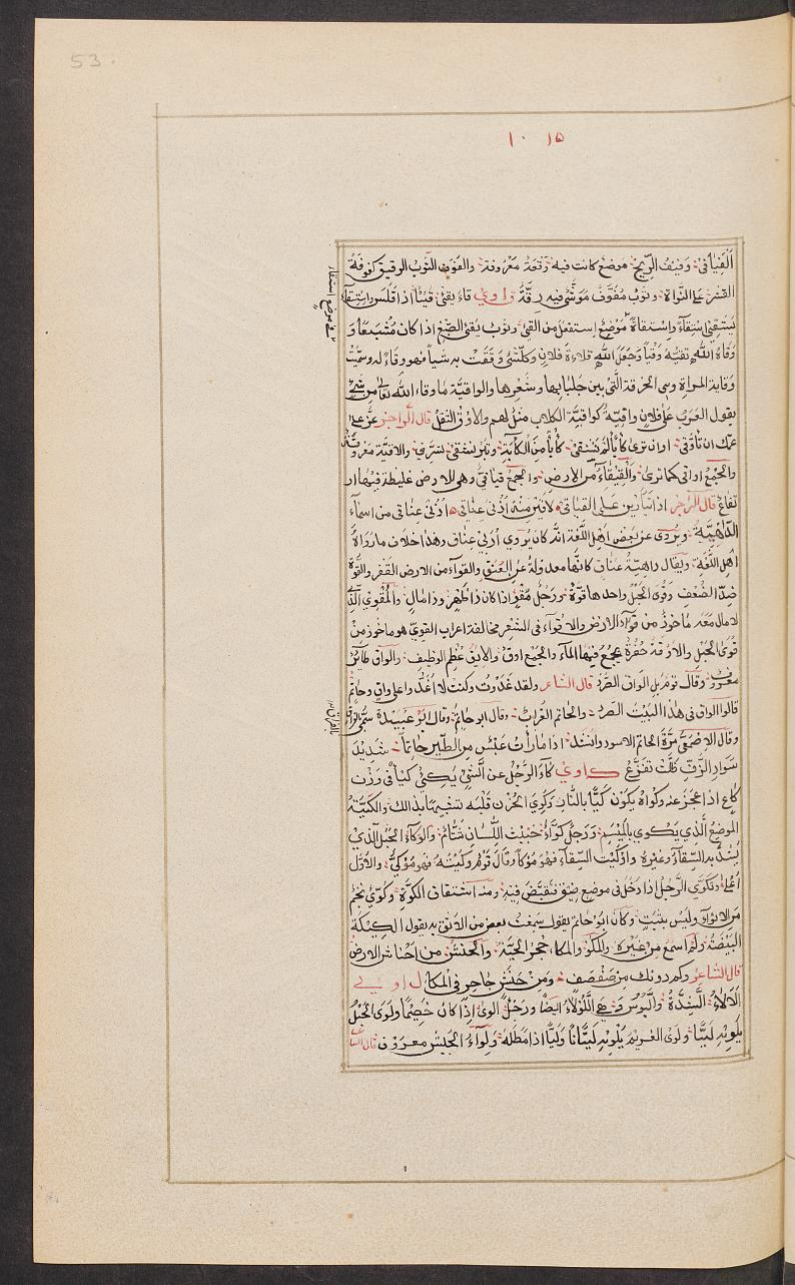 53.
١٠ ١٥
الفيافى وفيف الريح موضع كانت فيه وقعة معروفة والفوف الثوب الرقيق كفوفة
القشر على النواة وثوب مفوف موشى فيه رقة ق ا و ي قاء يقئ قيئاً اذا قلس واستقاء
يستقئ استقاءً واستقاءة موضع استفعل من القئ وثوب يقئ الصبغ اذا كان مشبعاً و
وقاه الله تقيّه وقياً وجعل الله فلاناً فلان وكل شئ وقفت به شياً فهو وقاءٌ له وسميت
وقاية المراة وهى الخرقة التى بين جلبابها وشعرها والواقية ما وقاه الله تعالى من شئ
يقول العرب على فلان واقية كواقية الكلاب مثل لهم والاوق الثقل قال الراجز عز على
عمك ان تأوقى اوان ترى كأباء لم تبرنشقى كأباً من الكآبة وتبرنشقى تسرى والاوقية معروفة
والجمع اواقى كما ترى والقيقاءة من الارض والجمع قياقى وهى الارض غليظة فيها ار
تفاع قال الراجز اذا تبارين على القياقى لاقين منه اذنى عناق اذنى عناق من اسماء
الداهية ويروى عن بعض اهل اللغة انه كان يروى اذنى عناق وهذا خلاف ما رواه
اهل اللغة ويقال داهية عناق كانها معدولة عن العنق والقواء من الارض القفر والقوة
ضد الضعف وقوى الحبل واحدها قوة ورجل مقو اذا كان ذا ظهر وذا مال والمقوى الذى
لا مال معه ماخوذ من قواء الارض والاقواء فى الشعر مخالفة اعراب القوافى هو ماخوذ من
قوى الحبل والاوقة حفرة يجمع فيها الماء والجمع اوق والايق عظم الوظيف والواق طائر
معروف وقال قوم بل الواق الصرد قال الشاعر ولقد غدوت وكنت لا اغدو على واق وحاتم
قالوا الواق فى هذا البيت الصرد والحاتم الغراب وقال ابو حاتم وقال ابو عبيدة سمى الواق
وقال الاصمعى مرة الحاتم الاسود وانشد اذا ما رأت عبس من الطير حاتماً شديد
سواد الزف ظلت تفزع ك ا و ي كاء الرجل عن الشئ يكئ كيئاً فى وزن
كاع اذا عجز عنه وكواه يكوه كياً بالنار وكوى الحزن قلبه تشبيهاً بذالك والكية
الموضع الذى يكوى بالميسم ورجل كواء خبيث اللسان شتام والوكاء الحبل الذى
يشد به السقاء وغيره واوكيت السقاء فهو موكاً وقال قوم وكيته فهو موكى والاول
اعلى وتكوى الرجل اذا دخل فى موضع ضيق فتقبض فيه ومنه اشتقاق الكوة وكوى نجم
من الانواء وليس بثبت وكان ابو حاتم يقول سمعت بعض من اثق به يقول الكيكة
البيضة ولم اسمع من غيره والمكو والمكا جحر الحية والحنش من احناش الارض
قال الشاعر وكم دونك من صفصف ومن حنش جاحر فى المكا ل ا و ي
اللأواء الشدة والبوس وهى اللولاء ايضاً ورجل الوى اذا كان خصيماً ولوى الحبل
يلويه لياً ولوى الغريم يلويه لياناً ولياً اذا مطله ولواء الجيش معروف قال الشاعر
فى موضع استقاء